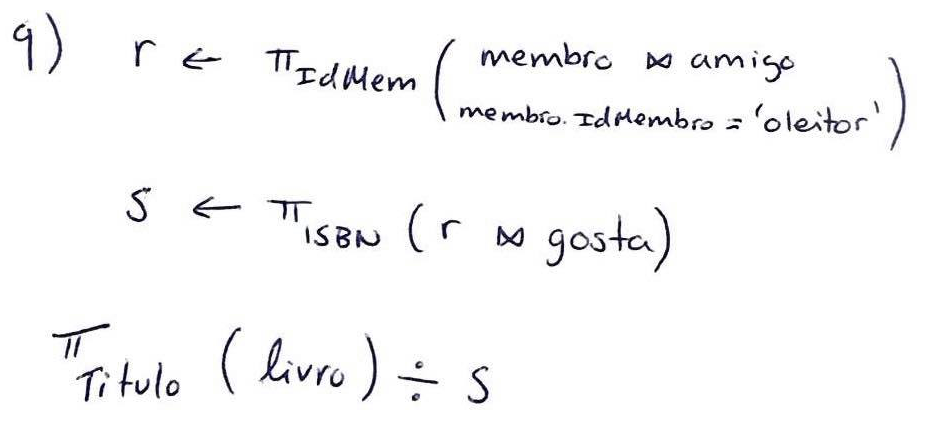 9) r ← π IdMem ( membro ⋈ amigo
membro.IdMembro = 'oleitor' )
s ← π ISBN ( r ⋈ gosta )
π Titulo ( livro ) ÷ s